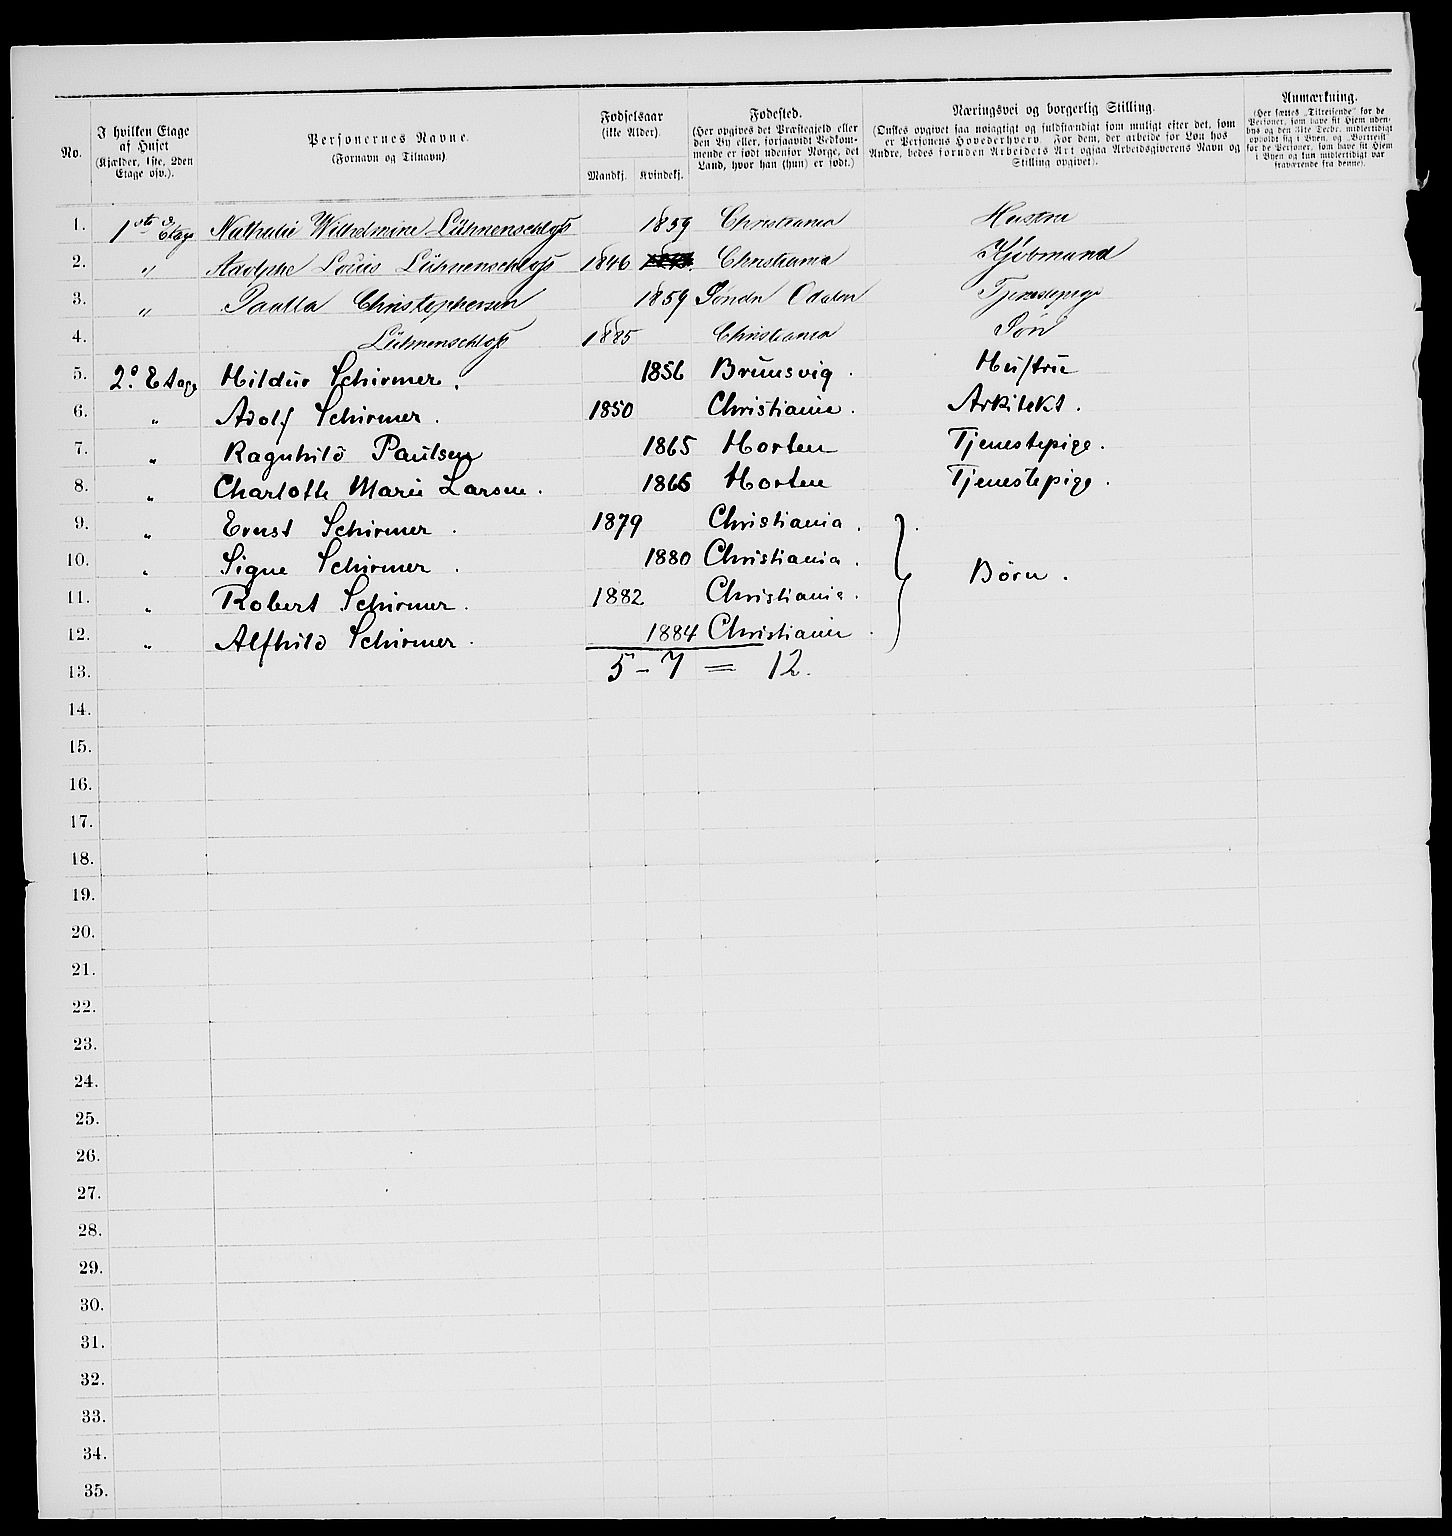 No.
I hvilken Etage af Huset (Kjælder, 1ste, 2den Etage osv.).
Personernes Navne. (Fornavn og Tilnavn)
Fødselsaar (ikke Alder).
Mandkj. Kvindekj.
Fødested. (Her opgives det Præstegjeld eller den By eller, forsaavidt Vedkommende er født udenfor Norge, det Land, hvor han (hun) er født.)
Næringsvei og borgerlig Stilling. (Ønskes opgivet saa nøiagtigt og fuldstændigt som muligt efter det, som er Personens Hovederhverv. For dem, der arbeide for Løn hos Andre, bedes foruden Arbeidets Art ogsaa Arbeidsgiverens Navn og Stilling opgivet).
Anmærkning. (Her sættes „Tilreisende“ for de Personer, som have sit Hjem udenbys og den 31te Decbr. midlertidigt opholdt sig i Byen, og „Bortreist“ for de Personer, som have sit Hjem i Byen og kun midlertidigt var fraværende fra denne).
1. 1ste Etage Nathalie Wilhelmine Lühnenschloß 1859 Christiania Hustru
2. " Adolphe Louis Lühnenschloß 1846 Christiania Kjøbmand
3. " Paulla Christophersen 1859 Søndr Odalen Tjenestepige
4. Lühnenschloß 1885 Christiania Søn
5. 2. Etage Hildur Schirmer. 1856 Brunsvig. Hustru
6. " Adolf Schirmer. 1850 Christiania. Arkitekt.
7. " Ragnhild Paulsen 1865 Horten Tjenestepige.
8. " Charlotte Marie Larsen. 1866 Horten Tjenestepige.
9. " Ernst Schirmer. 1879 Christiania.
10. " Signe Schirmer. 1880 Christiania. Børn.
11. " Robert Schirmer. 1882 Christiania.
12. " Alfhild Schirmer. 1884 Christiania.
13. 5 - 7 = 12.
14.
15.
16.
17.
18.
19.
20.
21.
22.
23.
24.
25.
26.
27.
28.
29.
30.
31.
32.
33.
34.
35.